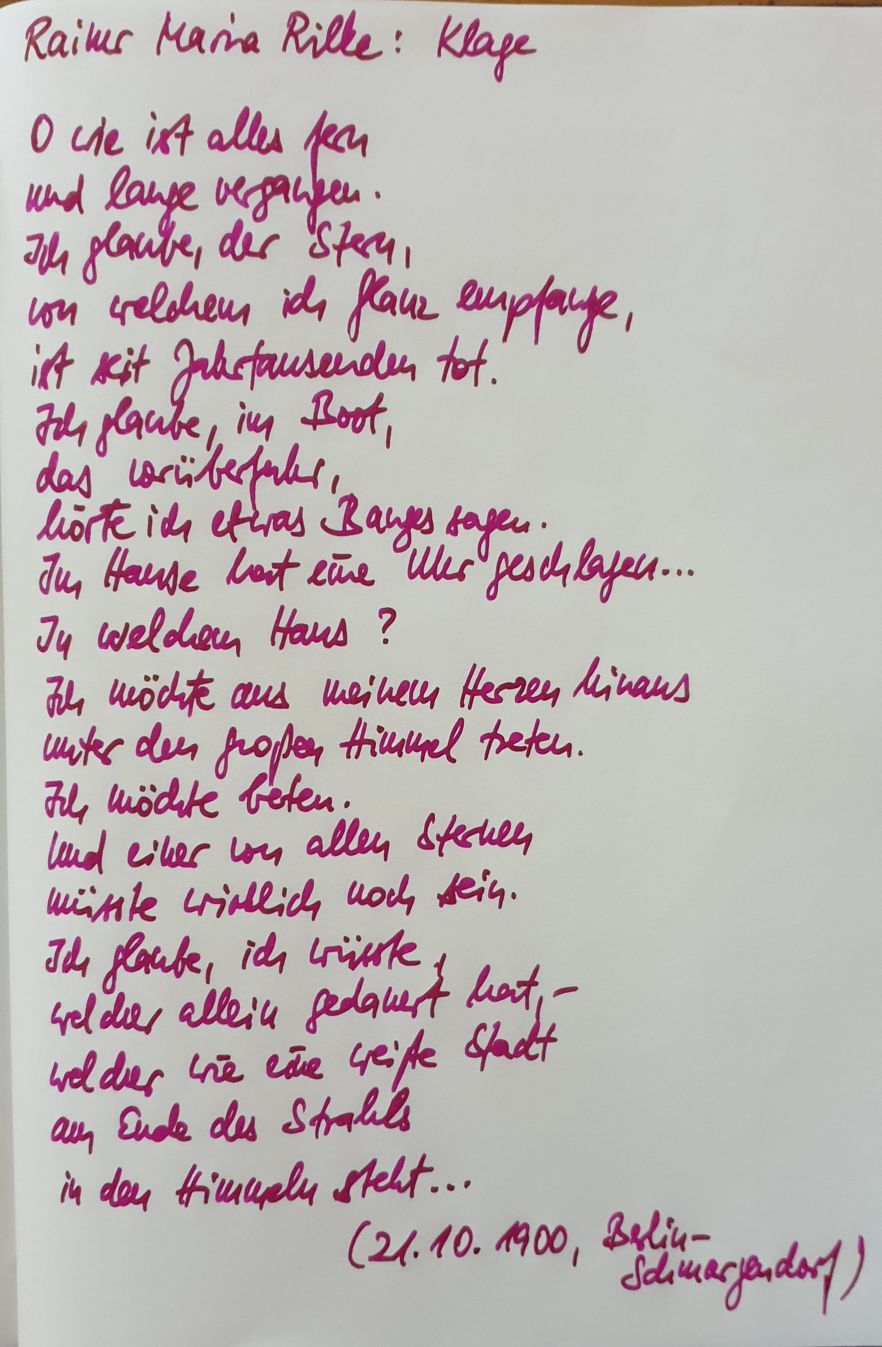 Rainer Maria Rilke: Klage
O wie ist alles fern
und lange vergangen.
Ich glaube, der Stern,
von welchem ich Glanz empfange,
ist seit Jahrtausenden tot.
Ich glaube, im Boot,
das vorüberfuhr,
hörte ich etwas Banges sagen.
Im Hause hat eine Uhr geschlagen...
In welchem Haus?
Ich möchte aus meinem Herzen hinaus
unter den großen Himmel treten.
Ich möchte beten.
Und einer von allen Sternen
müsste wirklich noch sein.
Ich glaube, ich wüsste,
welcher allein gedauert hat,-
welcher wie eine weiße Stadt
am Ende des Strahls
in den Himmeln steht...
(21.10.1900, Berlin-
Schmargendorf)